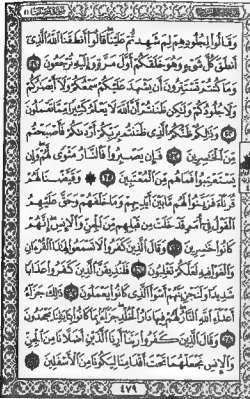 وَقَالُوا۟ لِجُلُودِهِمْ لِمَ شَهِدتُّمْ عَلَيْنَا قَالُوٓا۟ أَنطَقَنَا ٱللَّهُ ٱلَّذِىٓ
أَنطَقَ كُلَّ شَىْءٍ وَهُوَ خَلَقَكُمْ أَوَّلَ مَرَّةٍ وَإِلَيْهِ تُرْجَعُونَ ٢١
وَمَا كُنتُمْ تَسْتَتِرُونَ أَن يَشْهَدَ عَلَيْكُمْ سَمْعُكُمْ وَلَآ أَبْصَٰرُكُمْ
وَلَا جُلُودُكُمْ وَلَٰكِن ظَنَنتُمْ أَنَّ ٱللَّهَ لَا يَعْلَمُ كَثِيرًا مِّمَّا تَعْمَلُونَ
٢٢ وَذَٰلِكُمْ ظَنُّكُمُ ٱلَّذِى ظَنَنتُم بِرَبِّكُمْ أَرْدَىٰكُمْ فَأَصْبَحْتُم
مِّنَ ٱلْخَٰسِرِينَ ٢٣ فَإِن يَصْبِرُوا۟ فَٱلنَّارُ مَثْوًى لَّهُمْ وَإِن
يَسْتَعْتِبُوا۟ فَمَا هُم مِّنَ ٱلْمُعْتَبِينَ ٢٤ ۞ وَقَيَّضْنَا لَهُمْ
قُرَنَآءَ فَزَيَّنُوا۟ لَهُم مَّا بَيْنَ أَيْدِيهِمْ وَمَا خَلْفَهُمْ وَحَقَّ عَلَيْهِمُ
ٱلْقَوْلُ فِىٓ أُمَمٍ قَدْ خَلَتْ مِن قَبْلِهِم مِّنَ ٱلْجِنِّ وَٱلْإِنسِ إِنَّهُمْ
كَانُوا۟ خَٰسِرِينَ ٢٥ وَقَالَ ٱلَّذِينَ كَفَرُوا۟ لَا تَسْمَعُوا۟ لِهَٰذَا ٱلْقُرْءَانِ
وَٱلْغَوْا۟ فِيهِ لَعَلَّكُمْ تَغْلِبُونَ ٢٦ فَلَنُذِيقَنَّ ٱلَّذِينَ كَفَرُوا۟ عَذَابًا
شَدِيدًا وَلَنَجْزِيَنَّهُمْ أَسْوَأَ ٱلَّذِى كَانُوا۟ يَعْمَلُونَ ٢٧ ذَٰلِكَ جَزَآءُ
أَعْدَآءِ ٱللَّهِ ٱلنَّارُ لَهُمْ فِيهَا دَارُ ٱلْخُلْدِ جَزَآءًۢ بِمَا كَانُوا۟ بِـَٔايَٰتِنَا يَجْحَدُونَ
٢٨ وَقَالَ ٱلَّذِينَ كَفَرُوا۟ رَبَّنَآ أَرِنَا ٱلَّذَيْنِ أَضَلَّانَا مِنَ ٱلْجِنِّ
وَٱلْإِنسِ نَجْعَلْهُمَا تَحْتَ أَقْدَامِنَا لِيَكُونَا مِنَ ٱلْأَسْفَلِينَ ٢٩
٤٧٩